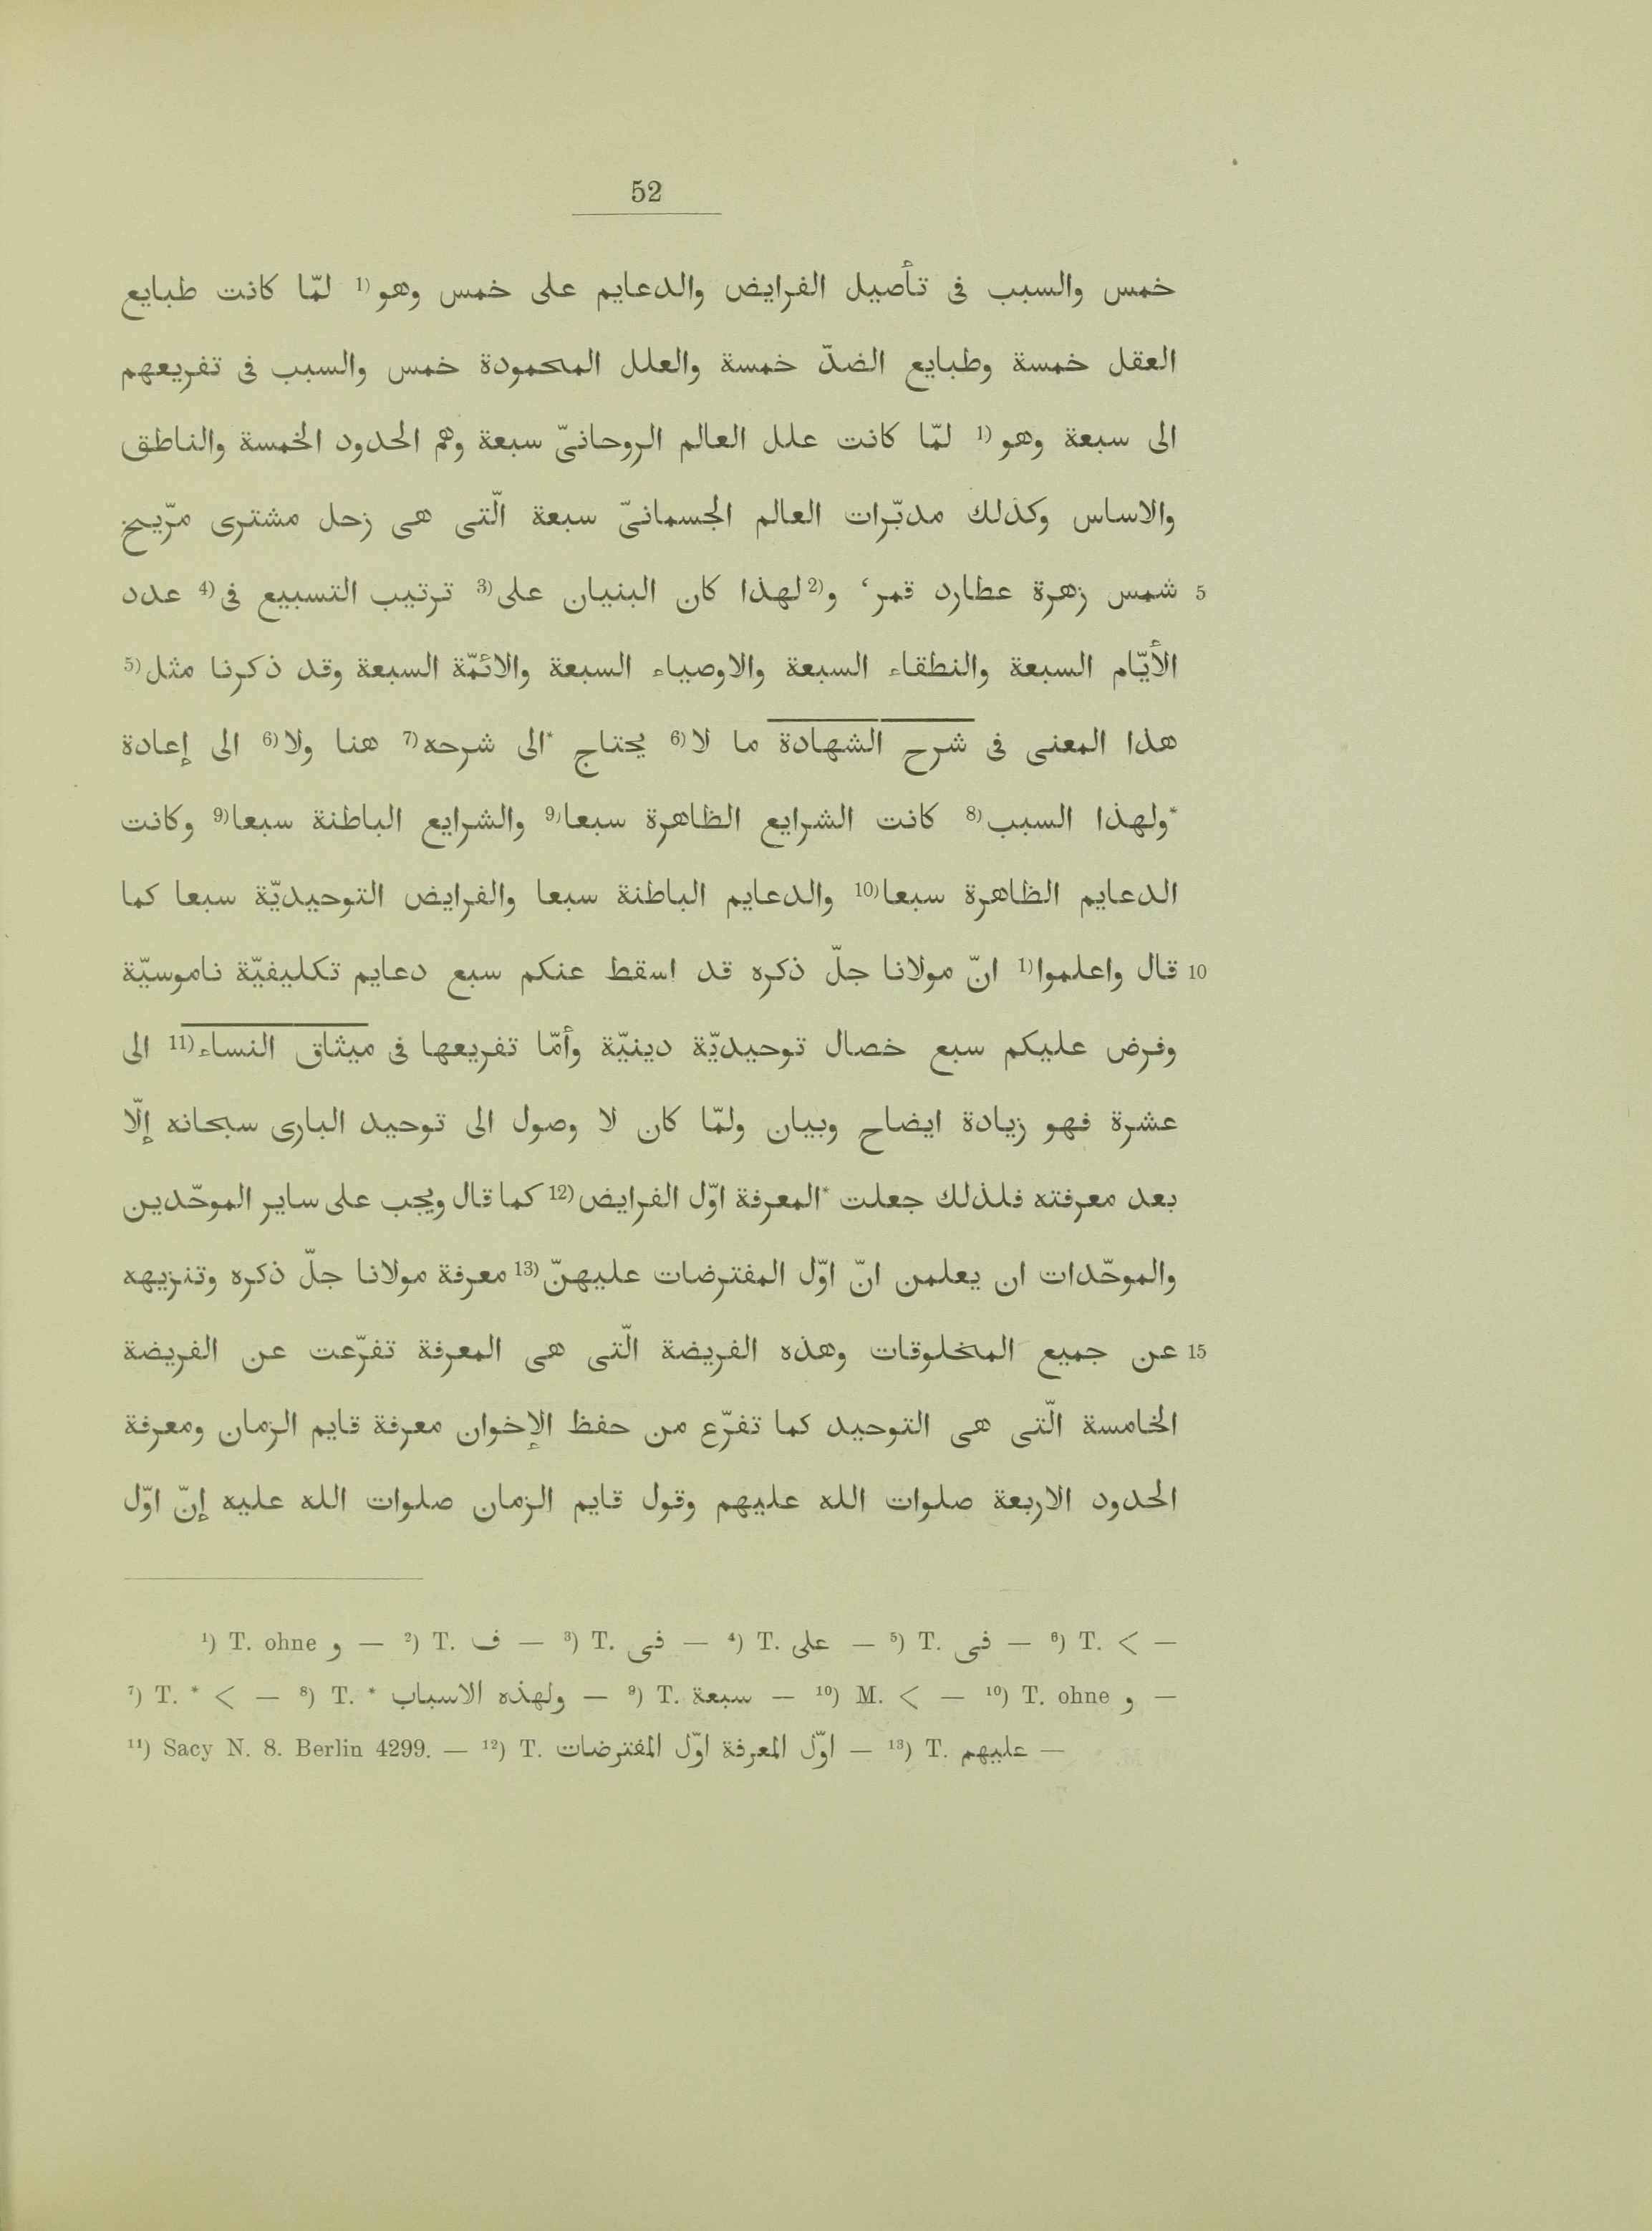 52
خمس والسبب فى تأصيل الفرايض والدعايم على خمس وهو(1 لمّا كانت طبايع
العقل خمسة وطبايع الضدّ خمسة والعلل المحمودة خمس والسبب فى تفريعهم
الى سبعة وهو(1 لمّا كانت علل العالم الروحانىّ سبعة وهم الحدود الخمسة والناطق
والاساس وكذلك مدبّرات العالم الجسمانىّ سبعة الّتى هى زحل مشترى مرّيخ
5 شمس زهرة عطارد قمر، و(2لهذا كان البنيان على(3 ترتيب التسبيع فى(4 عدد
الأيّام السبعة والنطقاء السبعة والاوصياء السبعة والائمّة السبعة وقد ذكرنا مثل(5
هذا المعنى فى شرح الشهادة ما لا(6 يحتاج *الى شرحه(7 هنا ولا(6 الى إعادة
*ولهذا السبب(8 كانت الشرايع الظاهرة سبعا(9 والشرايع الباطنة سبعا(9 وكانت
الدعايم الظاهرة سبعا(10 والدعايم الباطنة سبعا والفرايض التوحيديّة سبعا كما
10 قال واعلموا(1 انّ مولانا جلّ ذكره قد اسقط عنكم سبع دعايم تكليفيّة ناموسيّة
وفرض عليكم سبع خصال توحيديّة دينيّة وأمّا تفريعها فى ميثاق النساء(11 الى
عشرة فهو زيادة ايضاح وبيان ولمّا كان لا وصول الى توحيد البارى سبحانه إلّا
بعد معرفته فلذلك جعلت *المعرفة اوّل الفرايض(12 كما قال ويجب على ساير الموحّدين
والموحّدات ان يعلمن انّ اوّل المفترضات عليهنّ(13 معرفة مولانا جلّ ذكره وتنزيهه
15 عن جميع المخلوقات وهذه الفريضة الّتى هى المعرفة تفرّعت عن الفريضة
الخامسة الّتى هى التوحيد كما تفرّع من حفظ الإخوان معرفة قايم الزمان ومعرفة
الحدود الاربعة صلوات الله عليهم وقول قايم الزمان صلوات الله عليه إنّ اوّل
¹) T. ohne و — ²) T. ف — ³) T. فى — ⁴) T. على — ⁵) T. فى — ⁶) T. > —
⁷) T. * > — ⁸) T. * ولهذه الاسباب — ⁹) T. سبعة — ¹⁰) M. > — ¹⁰) T. ohne و —
¹¹) Sacy N. 8. Berlin 4299. — ¹²) T. اوّل المعرفة اوّل المفترضات — ¹³) T. عليهم —